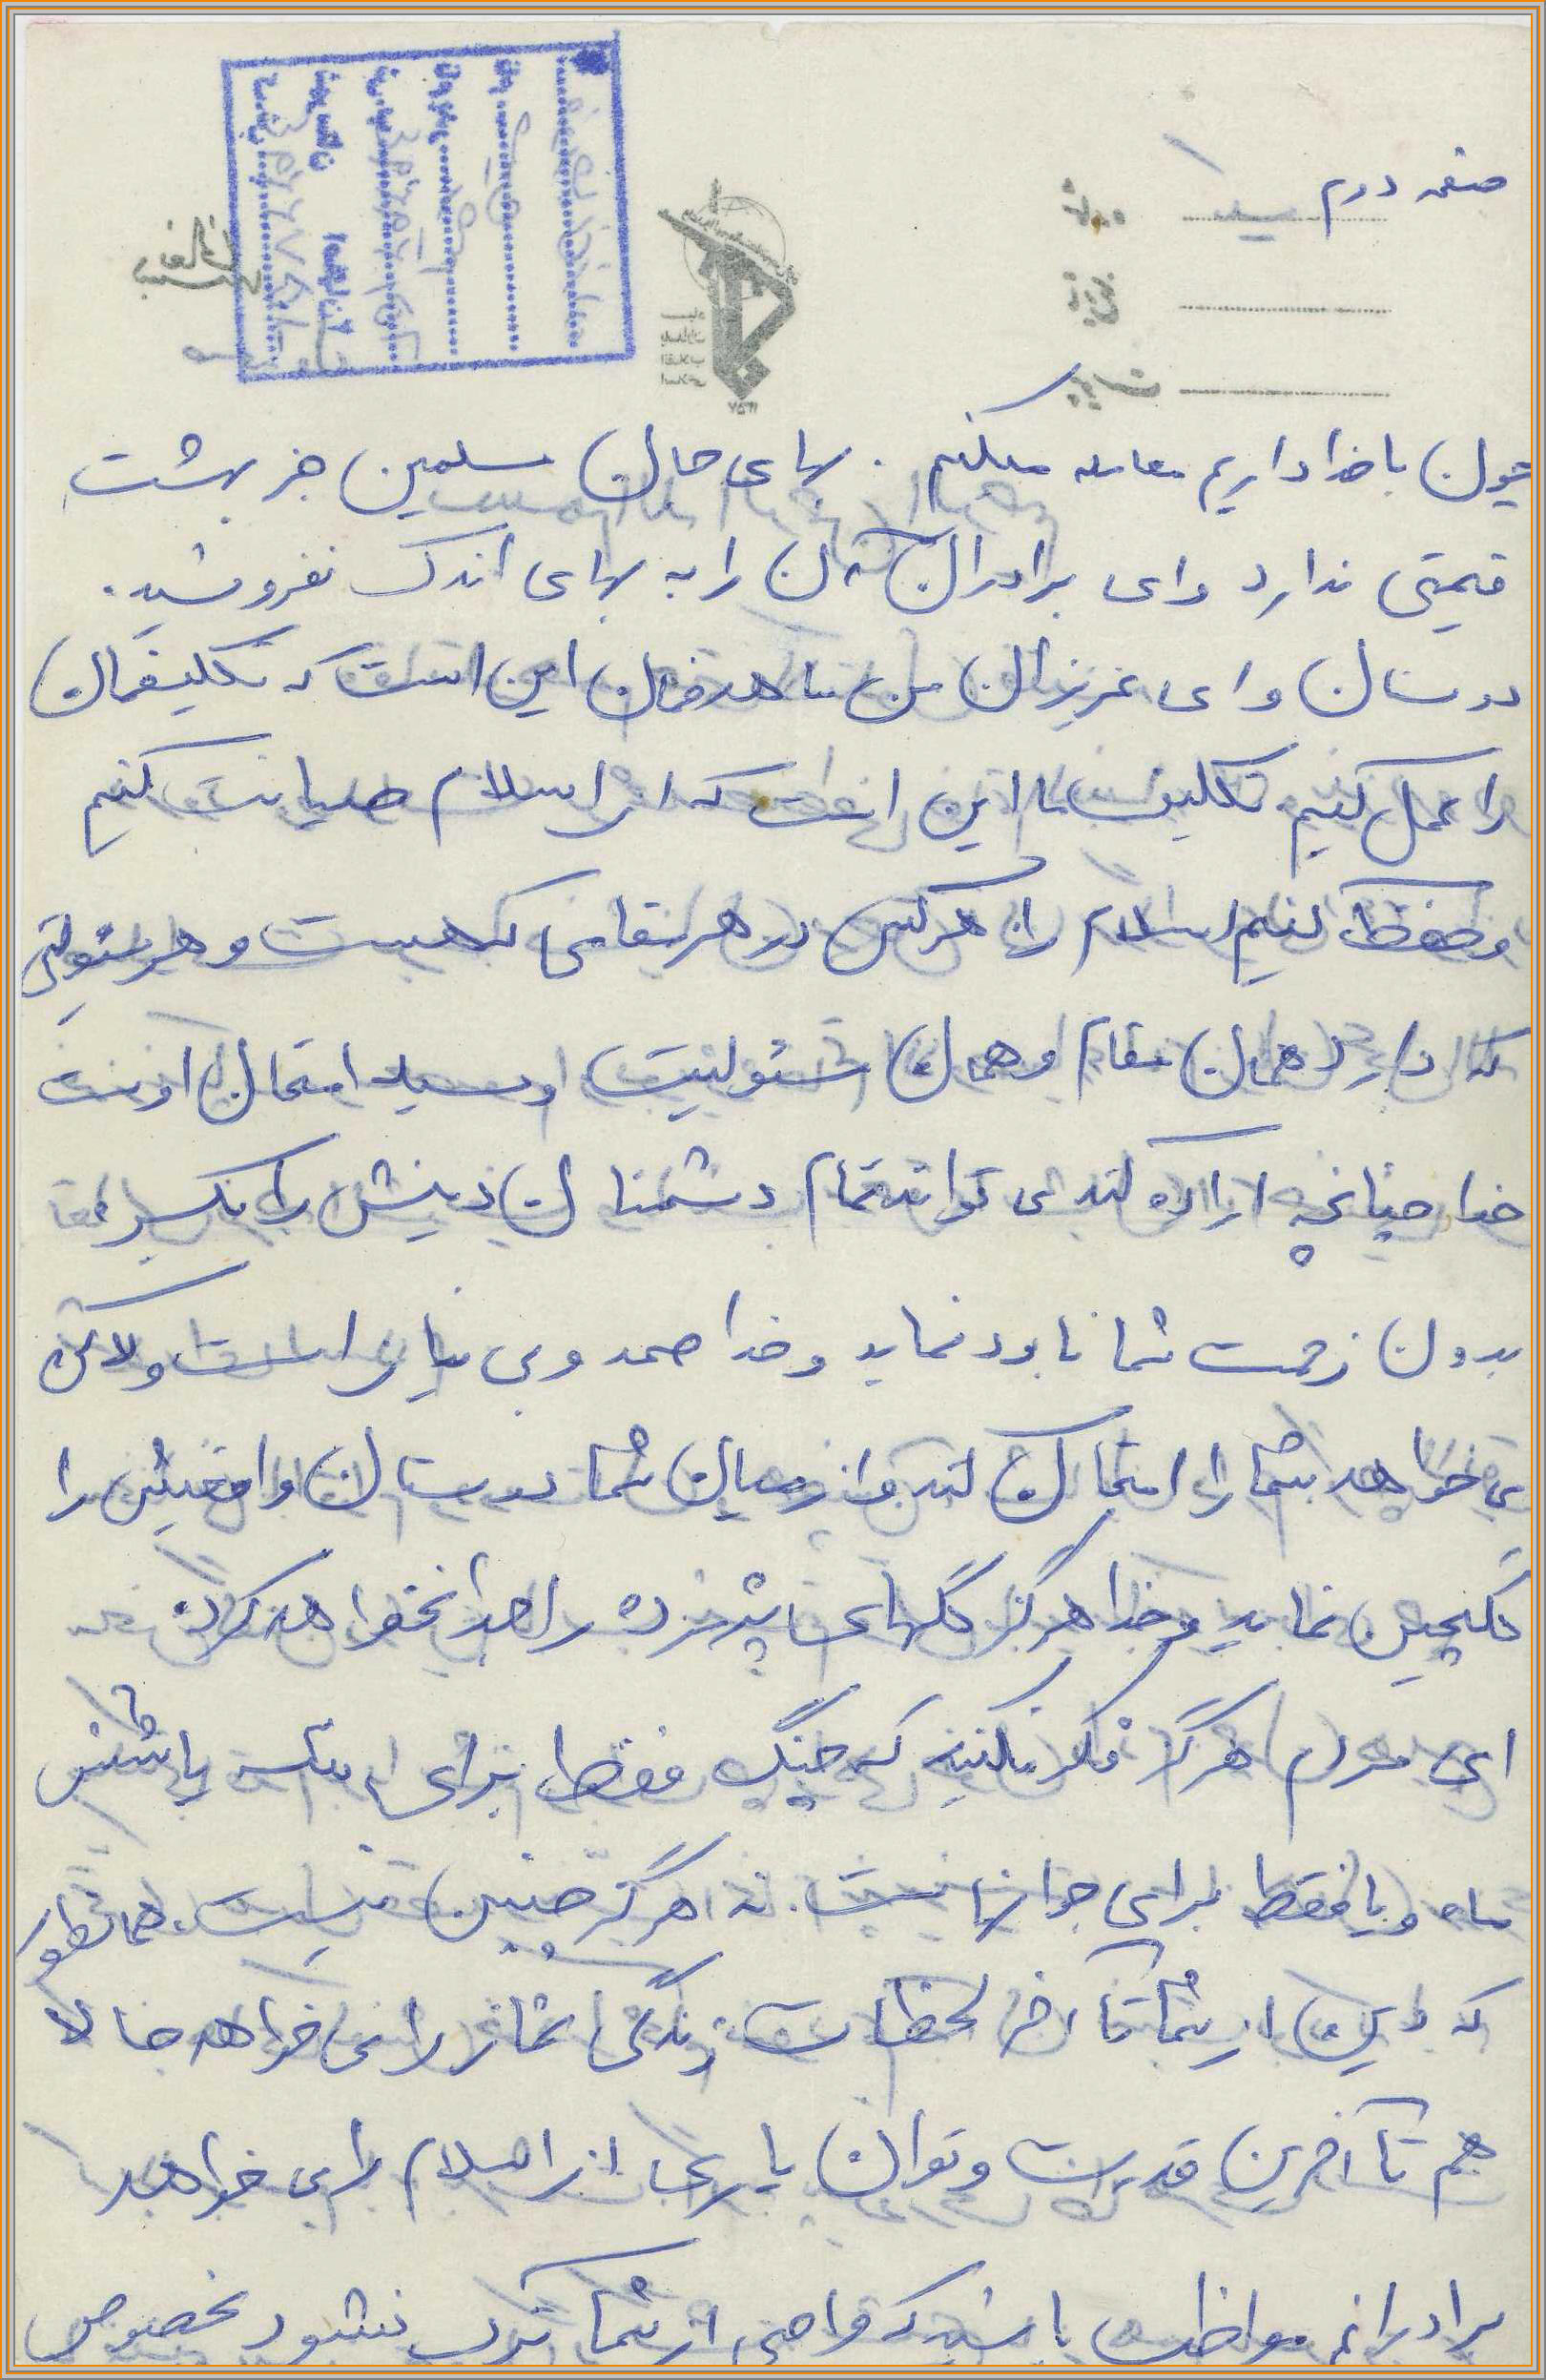 صفحه دوم
چون با خدا داریم معامله میکنیم. بهای جان مسلمین جز بهشت
قیمتی ندارد وای برادران آن را به بهای اندک نفروشید.
دوستان و ای عزیزان من ما هدفمان این است که تکلیفمان
را عمل کنیم تکلیف ما این است که از اسلام صیانت کنیم
و حفظ کنیم اسلام را. هر کس در هر مقامی که هست و هر مسئولیتی
که دارد همان مقام و همان مسئولیت وسیله امتحان اوست
خدا چنانچه اراده کند می تواند تمام دشمنان دینش را یکسره
بدون زحمت شما نابود نماید و خدا صمد و بی نیاز است ولاکن
می خواهد شما را امتحان کند و از میان شما دوستان واقعیش را
گلچین نماید و خدا هرگز گلهای پژمرده را جدا نخواهد کرد.
ای مردم هرگز فکر نکنید که جنگ فقط برای یا شش
ماه و یا فقط برای جوانها نیست. نه هرگز چنین نیست. همانطور
که دین از شما تا آخر لحظات زندگی نماز را می خواهد حالا
هم تا آخرین قدرت و توان یاری از اسلام را می خواهد
برادرانم مواظب باشید که واجبی از شما ترک نشود بخصوص